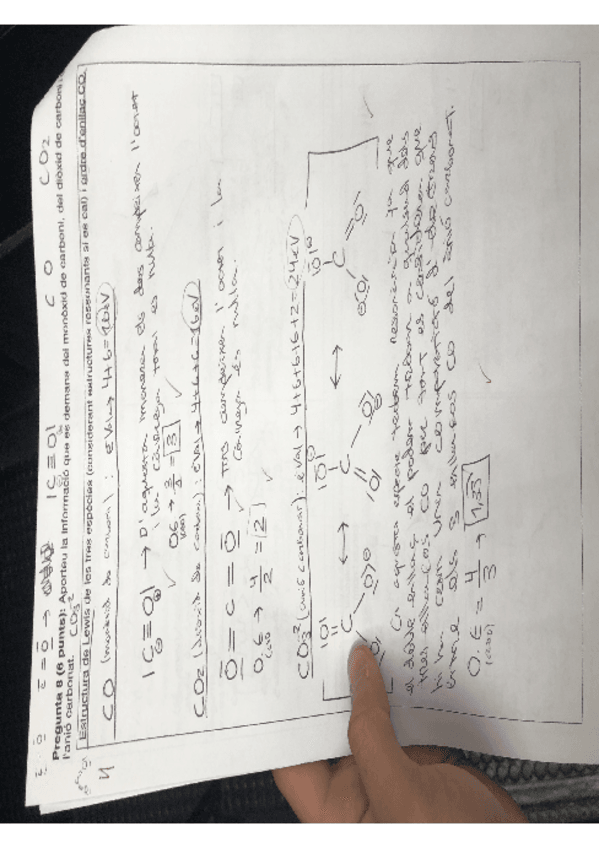 C̄ = Ō →
|C≡O|
CO
CO2
Pregunta 8 (6 punts): Aporteu la informació que es demana del monòxid de carboni, del diòxid de carboni i
l'anió carbonat. CO3²⁻
Estructura de Lewis de les tres espècies (considerant estructures ressonants si es cal) i ordre d'enllaç CO.
CO (monòxid de carboni): eVal → 4+6=10eV
|C≡O| → D'aquesta manera els dos compleixen l'octet
i la càrrega total és nul·la.
OE → 3/1 = 3
(CO)
CO2 (diòxid de carboni): eVal → 4+6+6=16eV
Ō=C=Ō → Tres compleixen l'octet i la
càrrega és nul·la.
O.E → 4/2 = 2
(CO)
CO3²⁻ (anió carbonat): eVal → 4+6+6+6+2=24eV
En aquesta espècie trobem ressonància ja que
el doble enllaç el podem trobar en qualsevol dels
tres enllaços CO per tant es considera que
hi ha
dels 3 enllaços CO del anió carbonat.
O.E = 4/3 → 1,33
(CO)